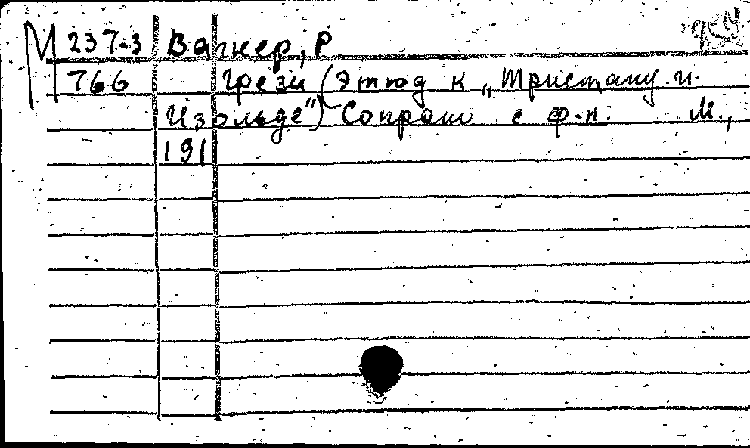 М 237-3 Вагнер, Р
766 Грезы (Этюд к „Тристану и
Изольде") Сопрано с ф.п. М.,
191